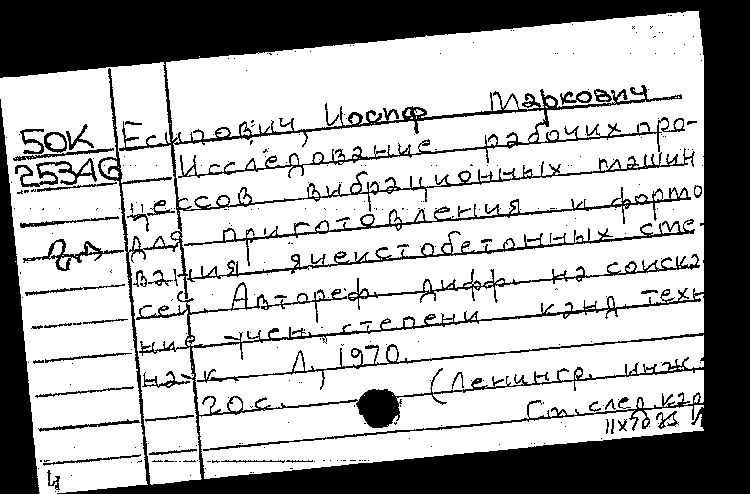 50К Есипович, Иосиф Маркович
25346 Исследование рабочих про-
цессов вибрационных машин
для приготовления и формо
вания ячеистобетонных сме-
сей. Автореф. дифф. на соиска
ние учен. степени канд. техн
наук. Л., 1970.
20 с. (Ленингр. инж.-
См. след. кар